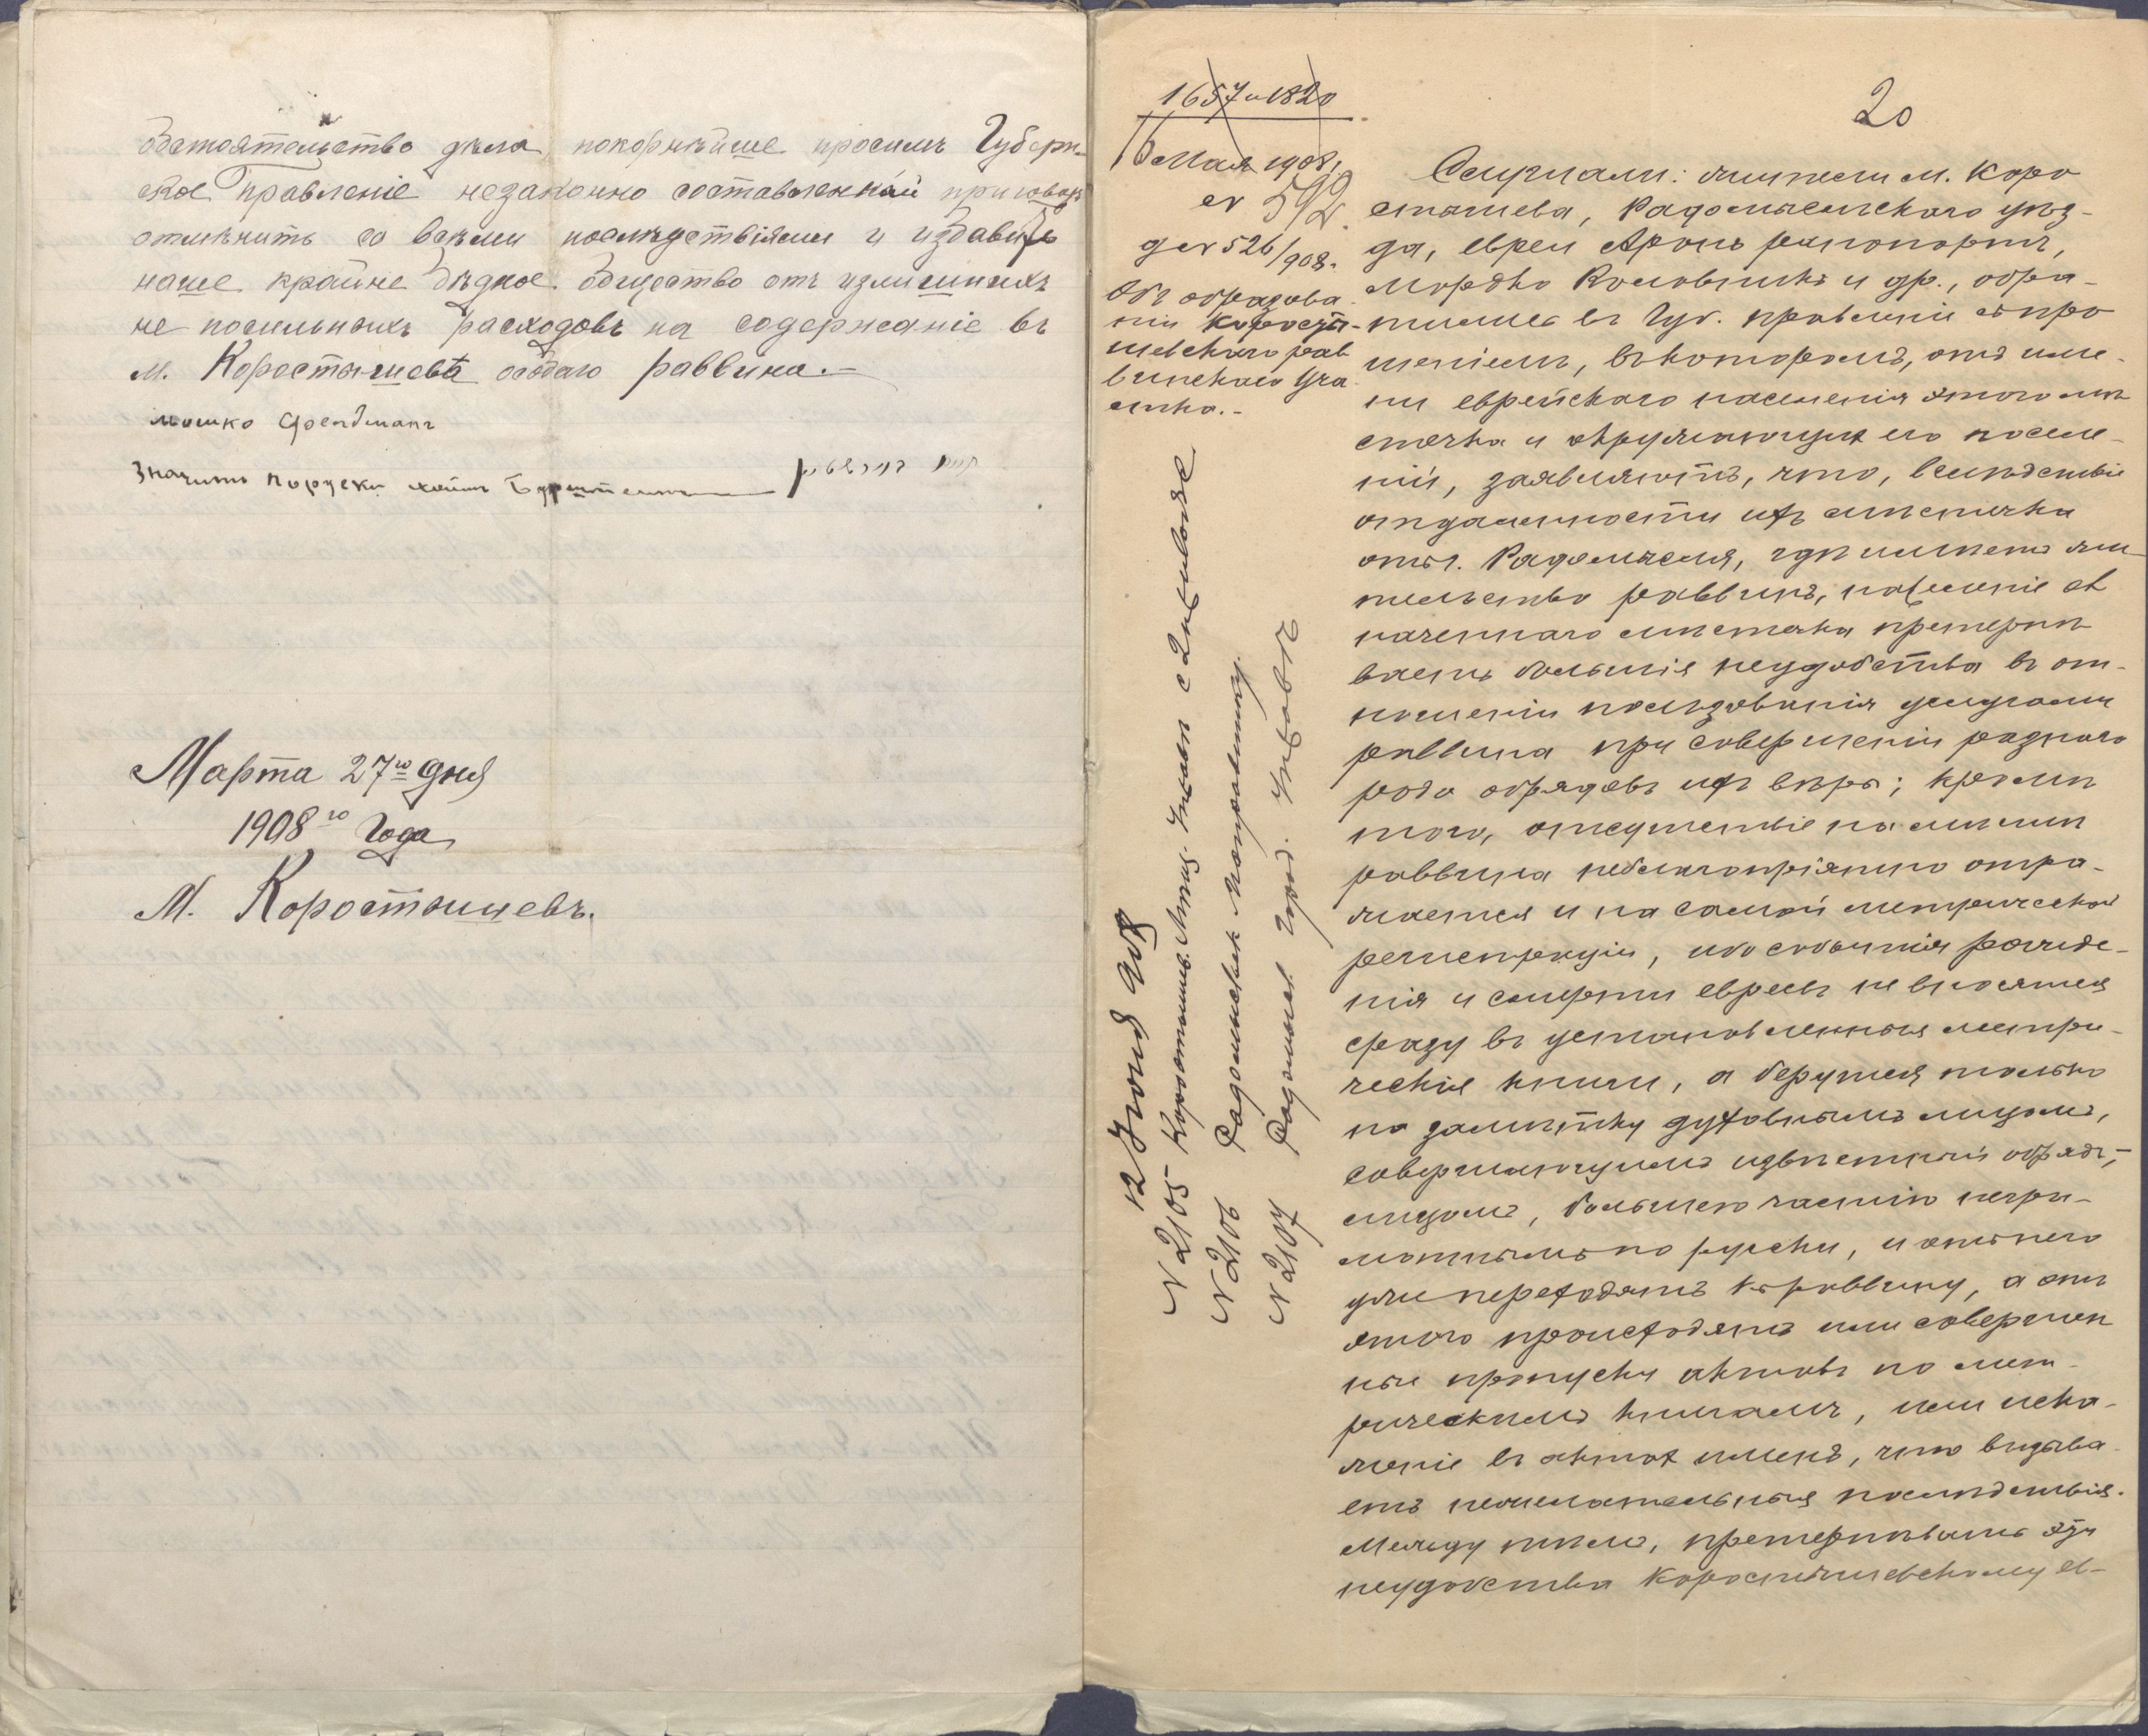 обстоятельство дѣла покорнѣйше просимъ Губерн-
ское Правленіе незаконно составленный приговоръ
отмѣнить со всѣми послѣдствіями и избавить
наше крайне бѣдное общество отъ излишнихъ
не посильныхъ расходовъ на содержаніе въ
м. Коростышевѣ особаго раввина.-
мошко Френдманъ
Значитъ поруски хаимъ Бурштеинъ
Марта 27го дня
1908го Года
М. Коростышевъ.
1657 и 1820
16 Мая 1908 г.
№ 592.
д № 526/908.
Объ образова-
ніи Коросты-
шевскаго рав
винскаго уча-
стка.-
12 Іюня 908
№ 2105 Коростышев.
№ 2106 Радомысльск. Исправнику.
№ 2107 Радомысл. Город.
20
Слушали: жители м. Коро
стышева, Радомысльскаго уѣз-
да, евреи Аронъ Рапопортъ,
Мордко и др., обра-
тились въ Губ. правленіе съ про
шеніемъ, въ которомъ, отъ име-
ни еврейскаго населенія этого мѣ
стечка и окружающихъ его поселе-
ній, заявляютъ, что, вслѣдствіе
отдаленности ихъ мѣстечка
отъ г. Радомысля, гдѣ имѣетъ жи-
тельство раввинъ, населеніе оз
наченнаго мѣстечка претерпѣ
ваетъ большія неудобства въ от-
ношеніи пользованія услугами
раввина при совершеніи разнаго
рода обрядовъ ихъ вѣры; кромѣ
того, отсутствіе на мѣстѣ
раввина неблагопріятно отра-
жается и на самой метрической
регистраціи, ибо событія рожде-
нія и смерти евреевъ не вносятся
сразу въ установленныя метри-
ческія книги, а берутся только
на замѣтку духовнымъ лицомъ,
совершающимъ извѣстный обрядъ,-
лицомъ, большею частію негра-
мотнымъ по русски, и отъ него
уже переходятъ къ раввину, а отъ
этого происходятъ или совершен
ные пропуски актовъ по мет-
рическимъ книгамъ, или иска-
женіе въ актахъ именъ, что вызыва-
етъ нежелательныя послѣдствія.
Между тѣмъ, претерпѣвать эти
неудобства Коростышевскому ев-